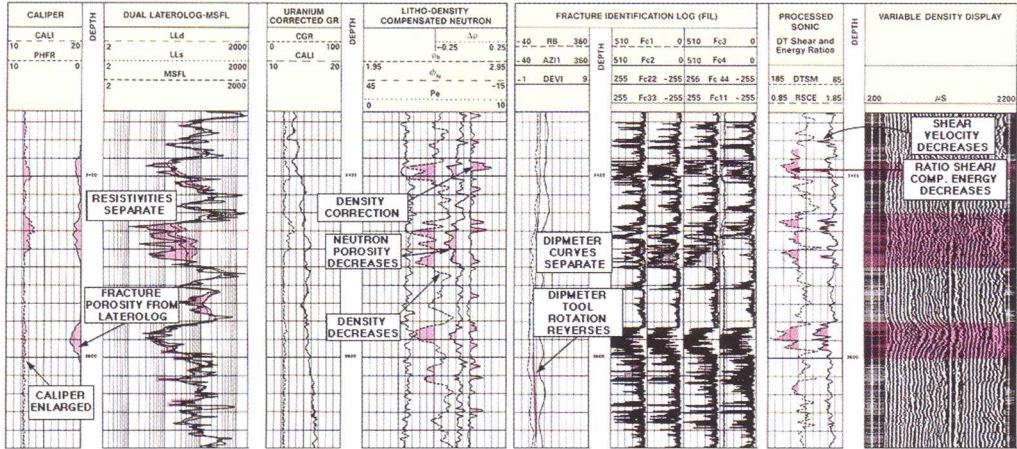 CALIPER
CALI
10 20
PHFR
10 0
DEPTH
DUAL LATEROLOG-MSFL
LLd
2 2000
LLs
2 2000
MSFL
2 2000
URANIUM
CORRECTED GR
CGR
0 100
CALI
10 20
DEPTH
LITHO-DENSITY
COMPENSATED NEUTRON
Δρ
-0.25 0.25
1.95 2.95
45 -15
Pe
0 10
FRACTURE IDENTIFICATION LOG (FIL)
-40 RB 360
-40 AZI1 360
-1 DEVI 9
DEPTH
510 Fc1 0
510 Fc3 0
510 Fc2 0
510 Fc4 0
255 Fc22 -255
255 Fc 44 -255
255 Fc33 -255
255 Fc11 -255
PROCESSED
SONIC
DT Shear and
Energy Ratios
185 DTSM 85
0.85 RSCE 1.85
DEPTH
VARIABLE DENSITY DISPLAY
200 µS 2200
RESISTIVITIES
SEPARATE
FRACTURE
POROSITY FROM
LATEROLOG
CALIPER
ENLARGED
DENSITY
CORRECTION
NEUTRON
POROSITY
DECREASES
DENSITY
DECREASES
DIPMETER
CURVES
SEPARATE
DIPMETER
TOOL
ROTATION
REVERSES
SHEAR
VELOCITY
DECREASES
RATIO SHEAR/
COMP. ENERGY
DECREASES